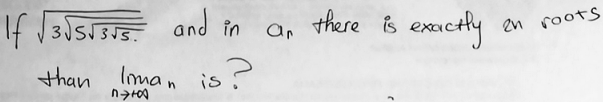 If √3√5√3√5. and in aₙ there is exactly 2n roots
than lim aₙ is?
n→+∞